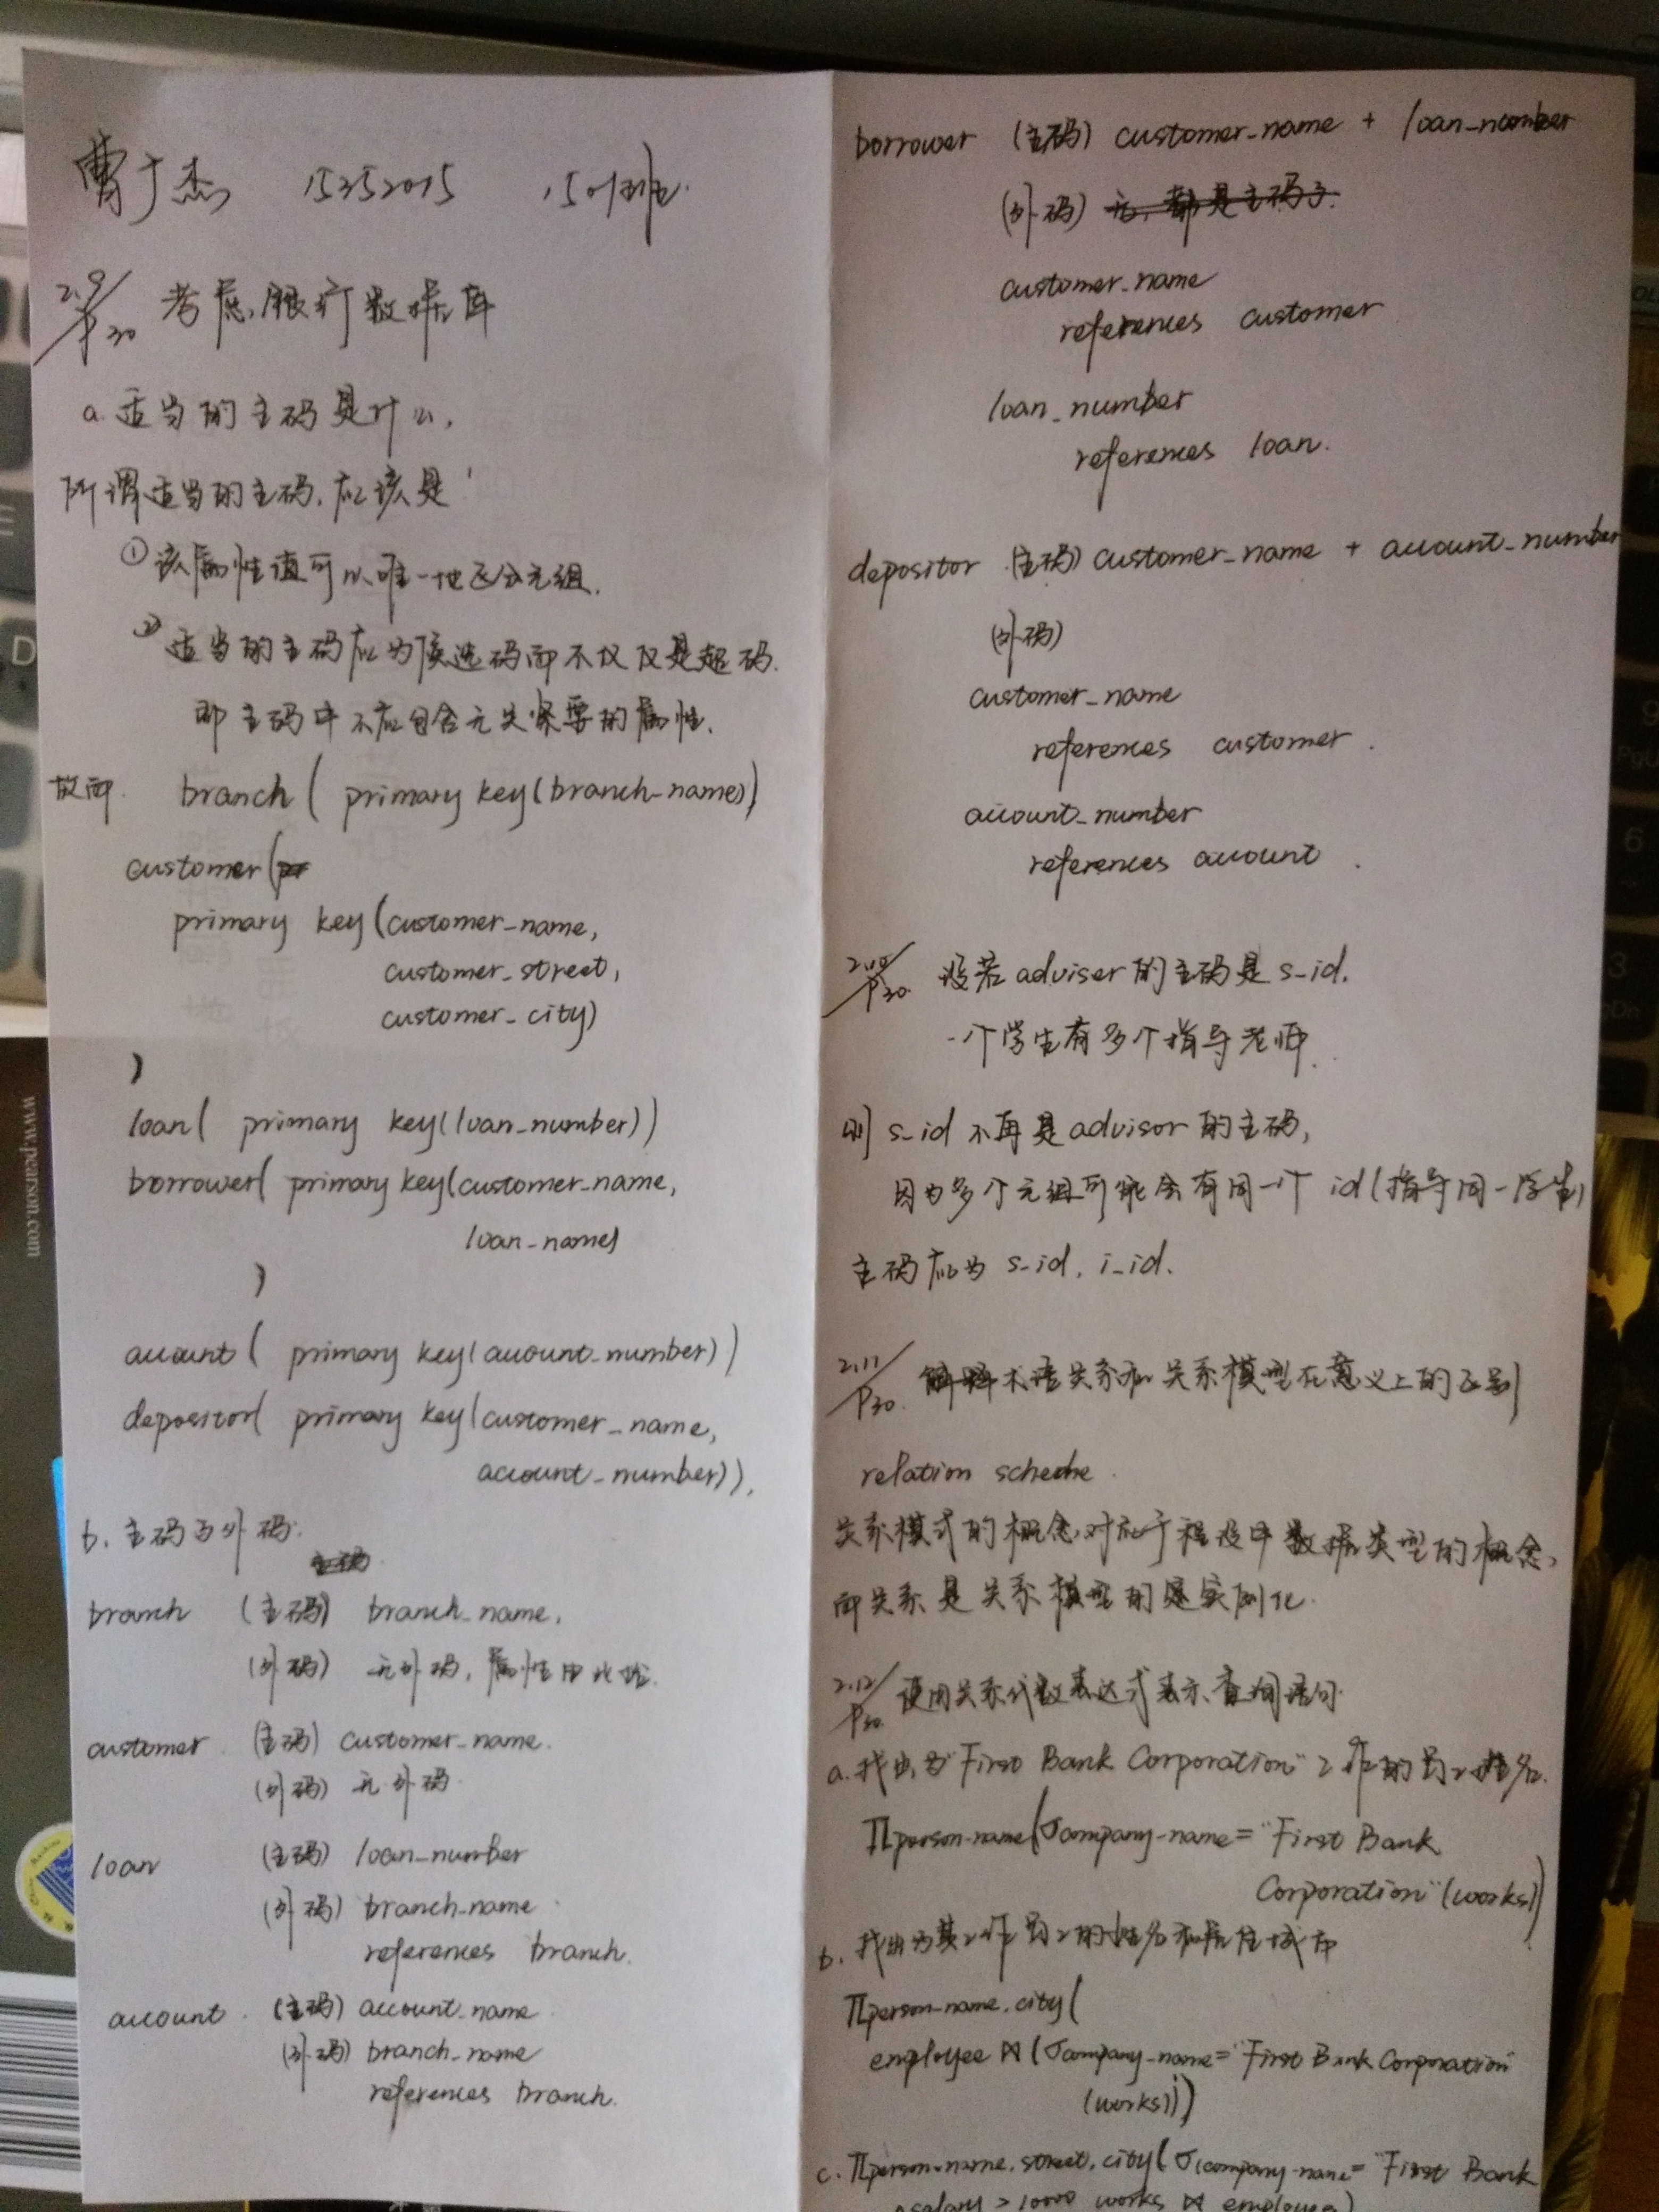 曹于杰 15352015 1501班.
2.9/P30 考虑银行数据库
a. 适当的主码是什么,
所谓适当的主码,应该是
① 该属性值可以唯一地区分元组.
② 适当的主码应为候选码而不仅仅是超码.
即主码中不应包含无关紧要的属性.
故而. branch ( primary key(branch-name))
customer(
primary key(customer-name,
customer_street,
customer_city)
)
loan( primary key(loan_number))
borrower( primary key(customer-name,
loan-name)
)
account ( primary key(account-number))
depositor( primary key(customer_name,
account-number)),
b. 主码与外码.
主码
branch (主码) branch_name,
(外码) 无外码, 属性由此
customer. (主码) customer-name.
(外码) 无外码.
loan (主码) loan_number
(外码) branch-name
references branch.
account. (主码) account_name
(外码) branch_name
references branch.
borrower (主码) customer_name + loan_number
(外码) 无, 都是主码了.
customer_name
references customer
loan_number
references loan.
depositor (主码) customer_name + account_number
(外码)
customer_name
references customer.
account_number
references account.
2.10/P30. 设若adviser的主码是s_id.
一个学生有多个指导老师.
则 s_id 不再是advisor的主码,
因为多个元组可能会有同一个id(指导同一学生)
主码应为 s_id, i_id.
2.11/P30. 解释术语关系和关系模型在意义上的区别
relation scheche.
关系模式的概念对应于程设中数据类型的概念,
而关系是关系模型的实例化.
2.12/P30 使用关系代数表达式表示查询语句.
a. 找出为"First Bank Corporation"工作的员工姓名.
∏person-name(σcompany-name="First Bank
Corporation"(works))
b. 找出为其工作员工的姓名和居住城市
∏person-name,city(
employee ⋈ (σcompany-name="First Bank Corporation"
(works)))
c. ∏person-name,street,city(σ(company-name="First Bank
salary > 10000 works ⋈ employee)
www.pearson.com
D
9
PgU
6
3